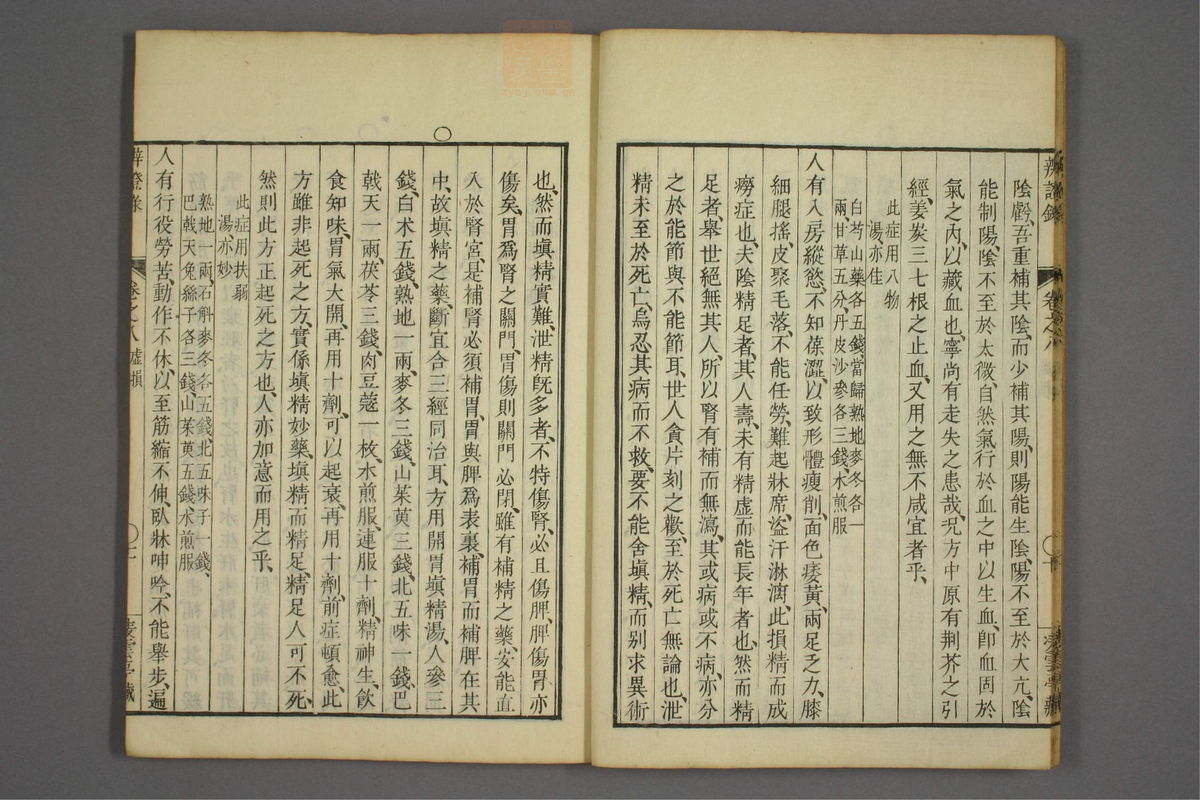 辨證錄 卷之八 凌雲亭藏
陰虧、吾重補其陰、而少補其陽、則陽能生陰、陽不至於大亢、陰
能制陽、陰不至於太微、自然氣行於血之中以生血、卽血固於
氣之內、以藏血也、寧尚有走失之患哉、况方中原有荆芥之引
經、姜炭三七根之止血、又用之無不咸宜者乎、
此症用八物
湯亦佳
白芍山藥各五錢當歸熟地麥冬各一
兩甘草五分、丹皮沙參各三錢、水煎服
人有入房縱慾、不知葆澀、以致形體瘦削、面色痿黃、兩足乏力、膝
細腿搖、皮聚毛落、不能任勞、難起牀席、盗汗淋漓、此損精而成
癆症也、夫陰精足者、其人壽、未有精虛而能長年者也、然而精
足者、舉世絕無其人、所以腎有補而無瀉、其或病或不病、亦分
之於能節與不能節耳、世人貪片刻之歡、至於死亡無論也、泄
精未至於死亡、烏忍其病而不救、要不能舍塡精、而别求異術
也、然而塡精實難、泄精旣多者、不特傷腎、必且傷脾、脾傷胃亦
傷矣、胃爲腎之關門、胃傷則關門必閉、雖有補精之藥、安能直
入於腎宮、是補腎必須補胃、胃與脾爲表裏、補胃而補脾在其
中、故塡精之藥、斷宜合三經同治耳、方用開胃塡精湯、人參三
錢、白术五錢、熟地一兩、麥冬三錢、山茱萸三錢、北五味一錢、巴
戟天一兩、茯苓三錢、肉豆蔻一枚、水煎服、連服十劑、精神生、飲
食知味、胃氣大開、再用十劑、可以起衰、再用十劑、前症頓愈、此
方雖非起死之方、實係塡精妙藥、塡精而精足、精足人可不死、
然則此方正起死之方也、人亦加意而用之乎、
此症用扶弱
湯亦妙
熟地一兩、石斛麥冬各五錢、北五味子一錢、
巴戟天兔絲子各三錢、山茱萸五錢、水煎服
人有行役勞苦、動作不休、以至筋縮不伸、臥牀呻吟、不能舉步、遍
辨證錄 卷之八 虛損 凌雲亭藏